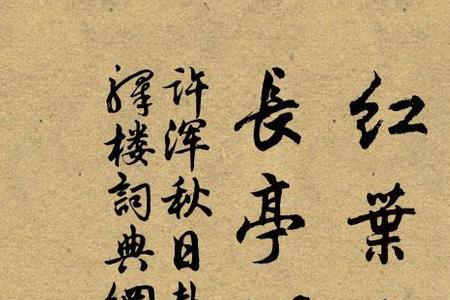 红葉
長亭
许浑秋日赴
驛楼詞典網